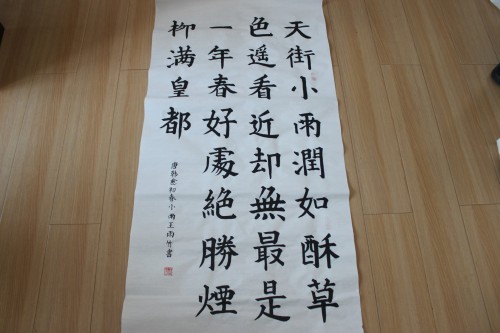 天街小雨潤如酥草
色遥看近却無最是
一年春好處絶勝煙
柳满皇都
唐韩愈初春小雨王雨竹書